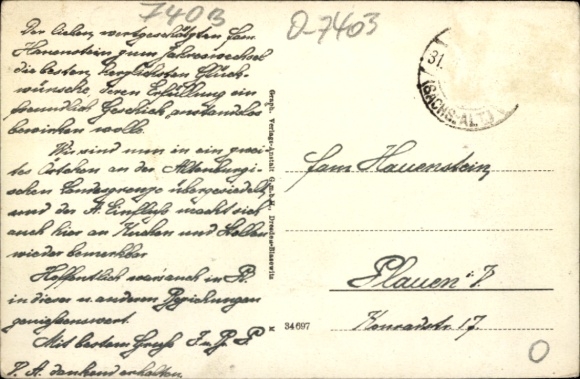 7403
0-7403
Der lieben, wertgeschätzten Fam.
Hauenstein zum Jahreswechsel
die besten, herzlichsten Glück-
wünsche, deren Erfüllung ein
freundlich Geschick anstandslos
bewirken wolle.
Wir sind nun in ein zwei
tes Örtchen an der Altenburgi-
schen Landesgrenze übergesiedelt
und der A. Einfluss macht sich
auch hier an Kuchen und Stollen
wieder bemerkbar
Hoffentlich war's auch in P.
in dieser u. anderen Beziehungen
geniessenswert.
Mit bestem Gruß
P. A. dankend erhalten.
Graph. Verlags-Anstalt G.m.b.H., Dresden-Blasewitz
K 34697
31.
(SACHS.-ALT.)
Fam Hauenstein
Plauen i. V.
Konradstr. 17.